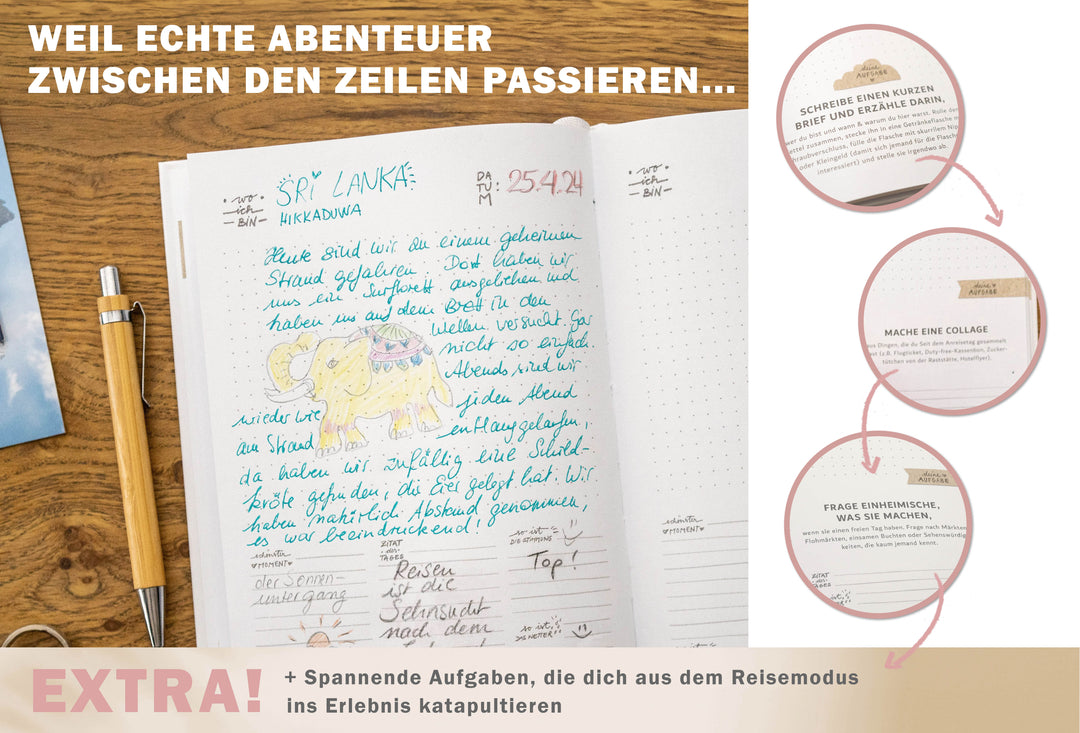 WEIL ECHTE ABENTEUER
ZWISCHEN DEN ZEILEN PASSIEREN...
• wo •
ich
– BIN –
SRI LANKA
HIKKADUWA
DA
TU:
M
25.4.24
Heute sind wir an einem geheimen
Strand gefahren. Dort haben wir
uns ein Surfbrett ausgeliehen und
haben uns auf dem Brett in den
Wellen versucht. Gar
nicht so einfach.
Abends sind wir
wieder wie
jeden Abend
am Strand
entlanggelaufen,
da haben wir zufällig eine Schild-
kröte gefunden, die Eier gelegt hat. Wir
haben natürlich Abstand genommen,
es war beeindruckend!
schönster
♥MOMENT♥
der Sonnen-
untergang
ZITAT
• des •
TAGES
Reisen
ist die
Sehnsucht
nach dem
so ist
DIE STIMMUNG
Top!
so ist
DAS WETTER
• wo •
ich
– BIN –
schönster
♥MOMENT♥
deine
AUFGABE
SCHREIBE EINEN KURZEN
BRIEF UND ERZÄHLE DARIN,
wer du bist und wann & warum du hier warst. Rolle den
zettel zusammen, stecke ihn in eine Getränkeflasche m
hraubverschluss, fülle die Flasche mit skurrilem Nip
oder Kleingeld (damit sich jemand für die Flasch
interessiert) und stelle sie irgendwo ab.
deine
AUFGABE
MACHE EINE COLLAGE
aus Dingen, die du Seit dem Anreisetag gesammelt
ast (z.B. Flugticket, Duty-free-Kassenbon, Zucker-
tütchen von der Raststätte, Hotelflyer).
deine
AUFGABE
FRAGE EINHEIMISCHE,
WAS SIE MACHEN,
wenn sie einen freien Tag haben. Frage nach Märkten
Flohmärkten, einsamen Buchten oder Sehenswürdig
keiten, die kaum jemand kennt.
ZITAT
• des •
TAGES
so ist
EXTRA!
+ Spannende Aufgaben, die dich aus dem Reisemodus
ins Erlebnis katapultieren